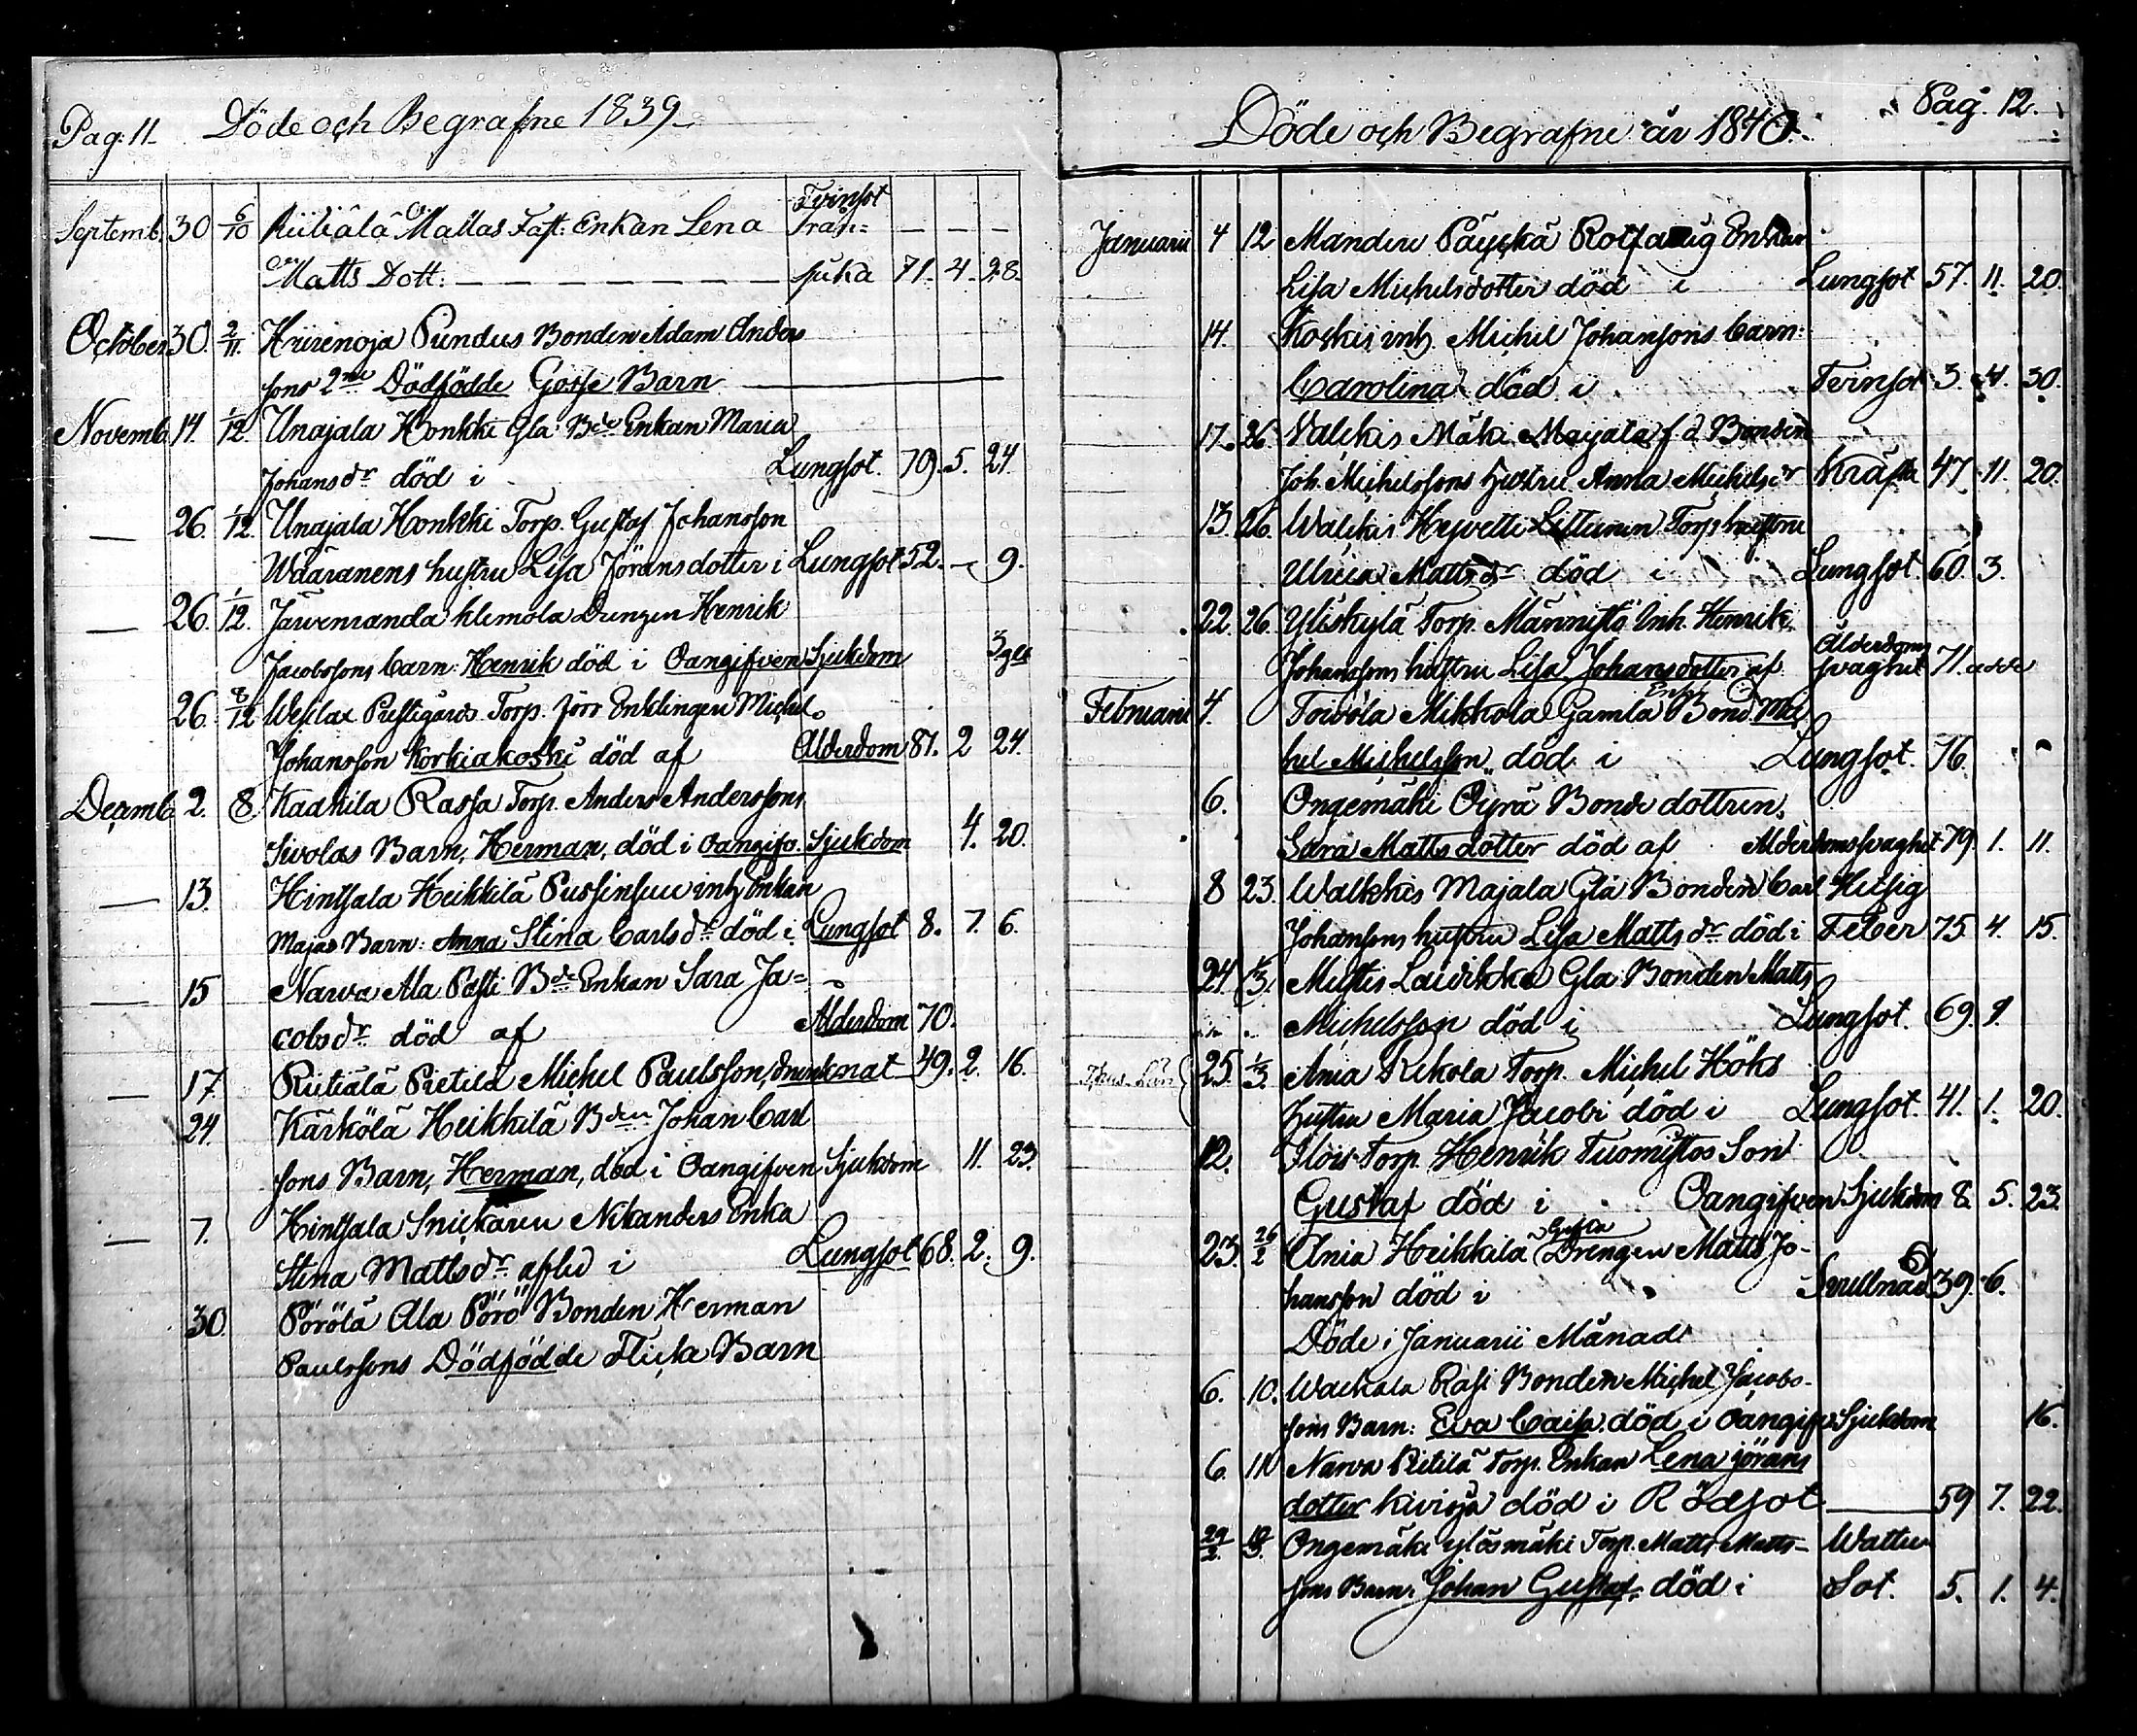 Pag: 11. Döde och Begrafne 1839
Tvinsot
Septemb. 30 6/10 Riitiälä Mattas Fatt: Enkan Lena Trån= — — —
Matts Dott: — — — — — — — sjuka 71. 4. 28.
October 30. 2/11. Hirsenoja Pundus Bonden Adam Anders
sons 2ne Dödfödde Gosse Barn
Novemb. 14. 1/12. Unajala Honkki Gla Bde Enkan Maria
Johansdr död i Lungsot. 79. 5. 24.
— 26. 1/12. Unajala Honkki Torp. Gustaf Johansson
Wääränens hustru Lisa Jöransdotter i Lungsot 52. — 9.
— 26. 1/12. Järvenranda Klemola Drengen Henrik
Jacobssons barn: Henrik död i Oangifven Sjukdom
26. 8/12 Prestgårds Torp. förr Enklingen Michel
Johansson Korkiakoski död af Ålderdom 81. 2 24.
Decemb. 2. 8. Kadkila Rassa Torp. Anders Anderssons
Sivolas Barn, Herman, död i oangifv. Sjukdom 4. 20.
— 13. Hintsala Heikkilä inh Enkan
Majas Barn: Anna Stina Carlsdr död i Lungsot 8. 7. 6.
— 15 Narva Ala Påsti Bde Enkan Sara Ja=
cobsdr död af Ålderdom 70.
— 17. Riitiälä Pietilä Michel Paulsson, drunknat 49. 2. 16.
24. Kärkölä Heikkilä Bden Johan Carl
sons Barn, Herman, död i Oangifven Sjukdom 11. 23.
— 7. Hintsala Snickaren Nikanders Enka
Stina Mattsdr afled i Lungsot 68. 2. 9.
30. Pörölä Ala Pörö Bonden Herman
Paulssons Dödfödde Flicka Barn
Döde och Begrafne år 1840. Pag. 12.
Januarii 4 12 Mandere Päyckä Enkan
Lisa Michelsdotter död i Lungsot 57. 11. 20.
14. Koskis inh. Michel Johansons barn:
Carolina död i Tvinsot 3. 4. 30.
17. 26. Valckis Mäki Maijala f.d. Bonden
Joh. Michelssons Hustru Anna Michelsdr Kräfta 47. 11. 20.
13. 26. Walckis Hyvetti Torp hustru
Ulrica Mattsdr död i Lungsot 60. 3.
22. 26. Yliskylä Torp. Männistö Inh. Henrik
Ålderdoms
Johanssons hustru Lisa Johansdotter af svaghet 71.
Enkn
Februarii 4. Toivola Mikkola Gamla Bond. Mic
hel Michelsson död i Lungsot. 76.
6. Ongemäki Öyrä Bonde dottren,
Sara Mattsdotter död af Alderdomssvaghet 79. 1. 11.
8 23. Walkkis Majala Gla Bonden Carl Hetsig
Johansons hustru Lisa Mattsdr död i Feber 75 4. 15.
24. 1/3. Laurikka Gla Bonden Matts
Michelsson död i Lungsot. 69. 9.
25. 1/3. Ania Rekola Torp. Michel Höks
Hustru Maria Jacobi död i Lungsot. 41. 1. 20.
12. Ilois Torp. Henrik Tuomistos Son
Gustaf död i Oangifven Sjukdom 8. 5. 23.
Gifta
23. 26/2 Ania Heikkilä Drengen Matts Jo-
hansson död i Svullnad 39. 6.
Döde i Januarii Månad
6. 10. Wackala Rasi Bonden Michel Jacobs-
sons Barn: Eva Caisa död i oangifv Sjukdom 16.
6. 11 Narva Pietilä Torp. Enkan Lena Jörans
dotter Kivioja död i Rödsot — 59 7. 22.
29/2. Ongemäki ylösmäki Torp. Matts Matts- Watten
sons Barn: Johan Gustaf, död i Sot. 5. 1. 4.